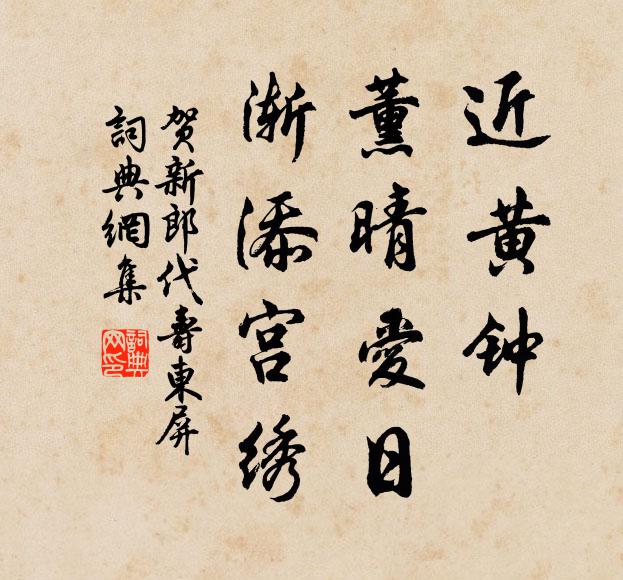 近黄钟
薰晴愛日
渐添宫绣
贺新郎代壽東屏
詞典網集
詞典网印